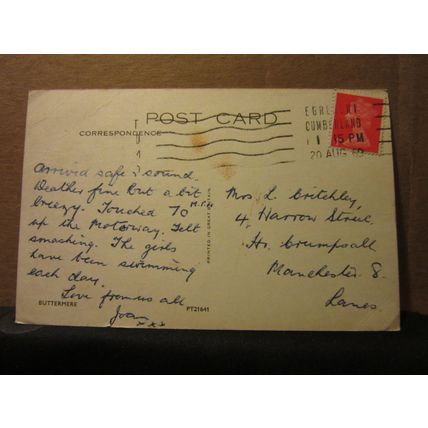 POST CARD
CORRESPONDENCE
CUMBERLAND
1 15 PM
20 AUG 69
Arrived safe & sound.
Weather fine but a bit
breezy. Touched 70 M.P.H.
up the Motorway. Felt
smashing. The girls
have been swimming
each day.
Love from us all
Joan
xxx
Mrs L. Critchley,
4, Harrow Street,
Hr. Crumpsall
Manchester 8.
Lancs.
PRINTED IN GREAT BRITAIN
BUTTERMERE
PT21641